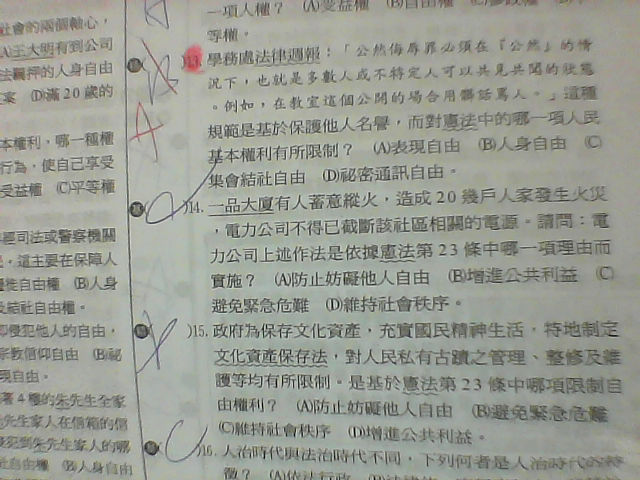 社會的兩個軸心，
(A)王大明有到公司
法羈押的人身自由
案 (D)滿20歲的
本權利，哪一種權
行為，使自己享受
受益權 (C)平等權
經司法或警察機關
，這主要在保障人
遷徙自由權 (B)人身
結社自由權。
侵犯他人的自由，
宗教信仰自由 (B)祕
現自由。
著4樓的朱先生全家
先生家人在信箱的信
犯到朱先生家人的哪
自由權 (B)人身自由
一項人權？ (A)受益權 (B)自由權
等權。
)13. 學務處法律週報：「公然侮辱罪必須在『公然』的情
況下，也就是多數人或不特定人可以共見共聞的狀態
。例如，在教室這個公開的場合用髒話罵人。」這種
規範是基於保護他人名譽，而對憲法中的哪一項人民
基本權利有所限制？ (A)表現自由 (B)人身自由 (C)
集會結社自由 (D)祕密通訊自由。
)14. 一品大廈有人蓄意縱火，造成20幾戶人家發生火災
，電力公司不得已截斷該社區相關的電源。請問：電
力公司上述作法是依據憲法第23條中哪一項理由而
實施？ (A)防止妨礙他人自由 (B)增進公共利益 (C)
避免緊急危難 (D)維持社會秩序。
)15. 政府為保存文化資產，充實國民精神生活，特地制定
文化資產保存法，對人民私有古蹟之管理、整修及維
護等均有所限制。是基於憲法第23條中哪項限制自
由權利？ (A)防止妨礙他人自由 (B)避免緊急危難
(C)維持社會秩序 (D)增進公共利益。
)16. 人治時代與法治時代不同，下列何者是人治時代的特
徵？ (A)依法行政